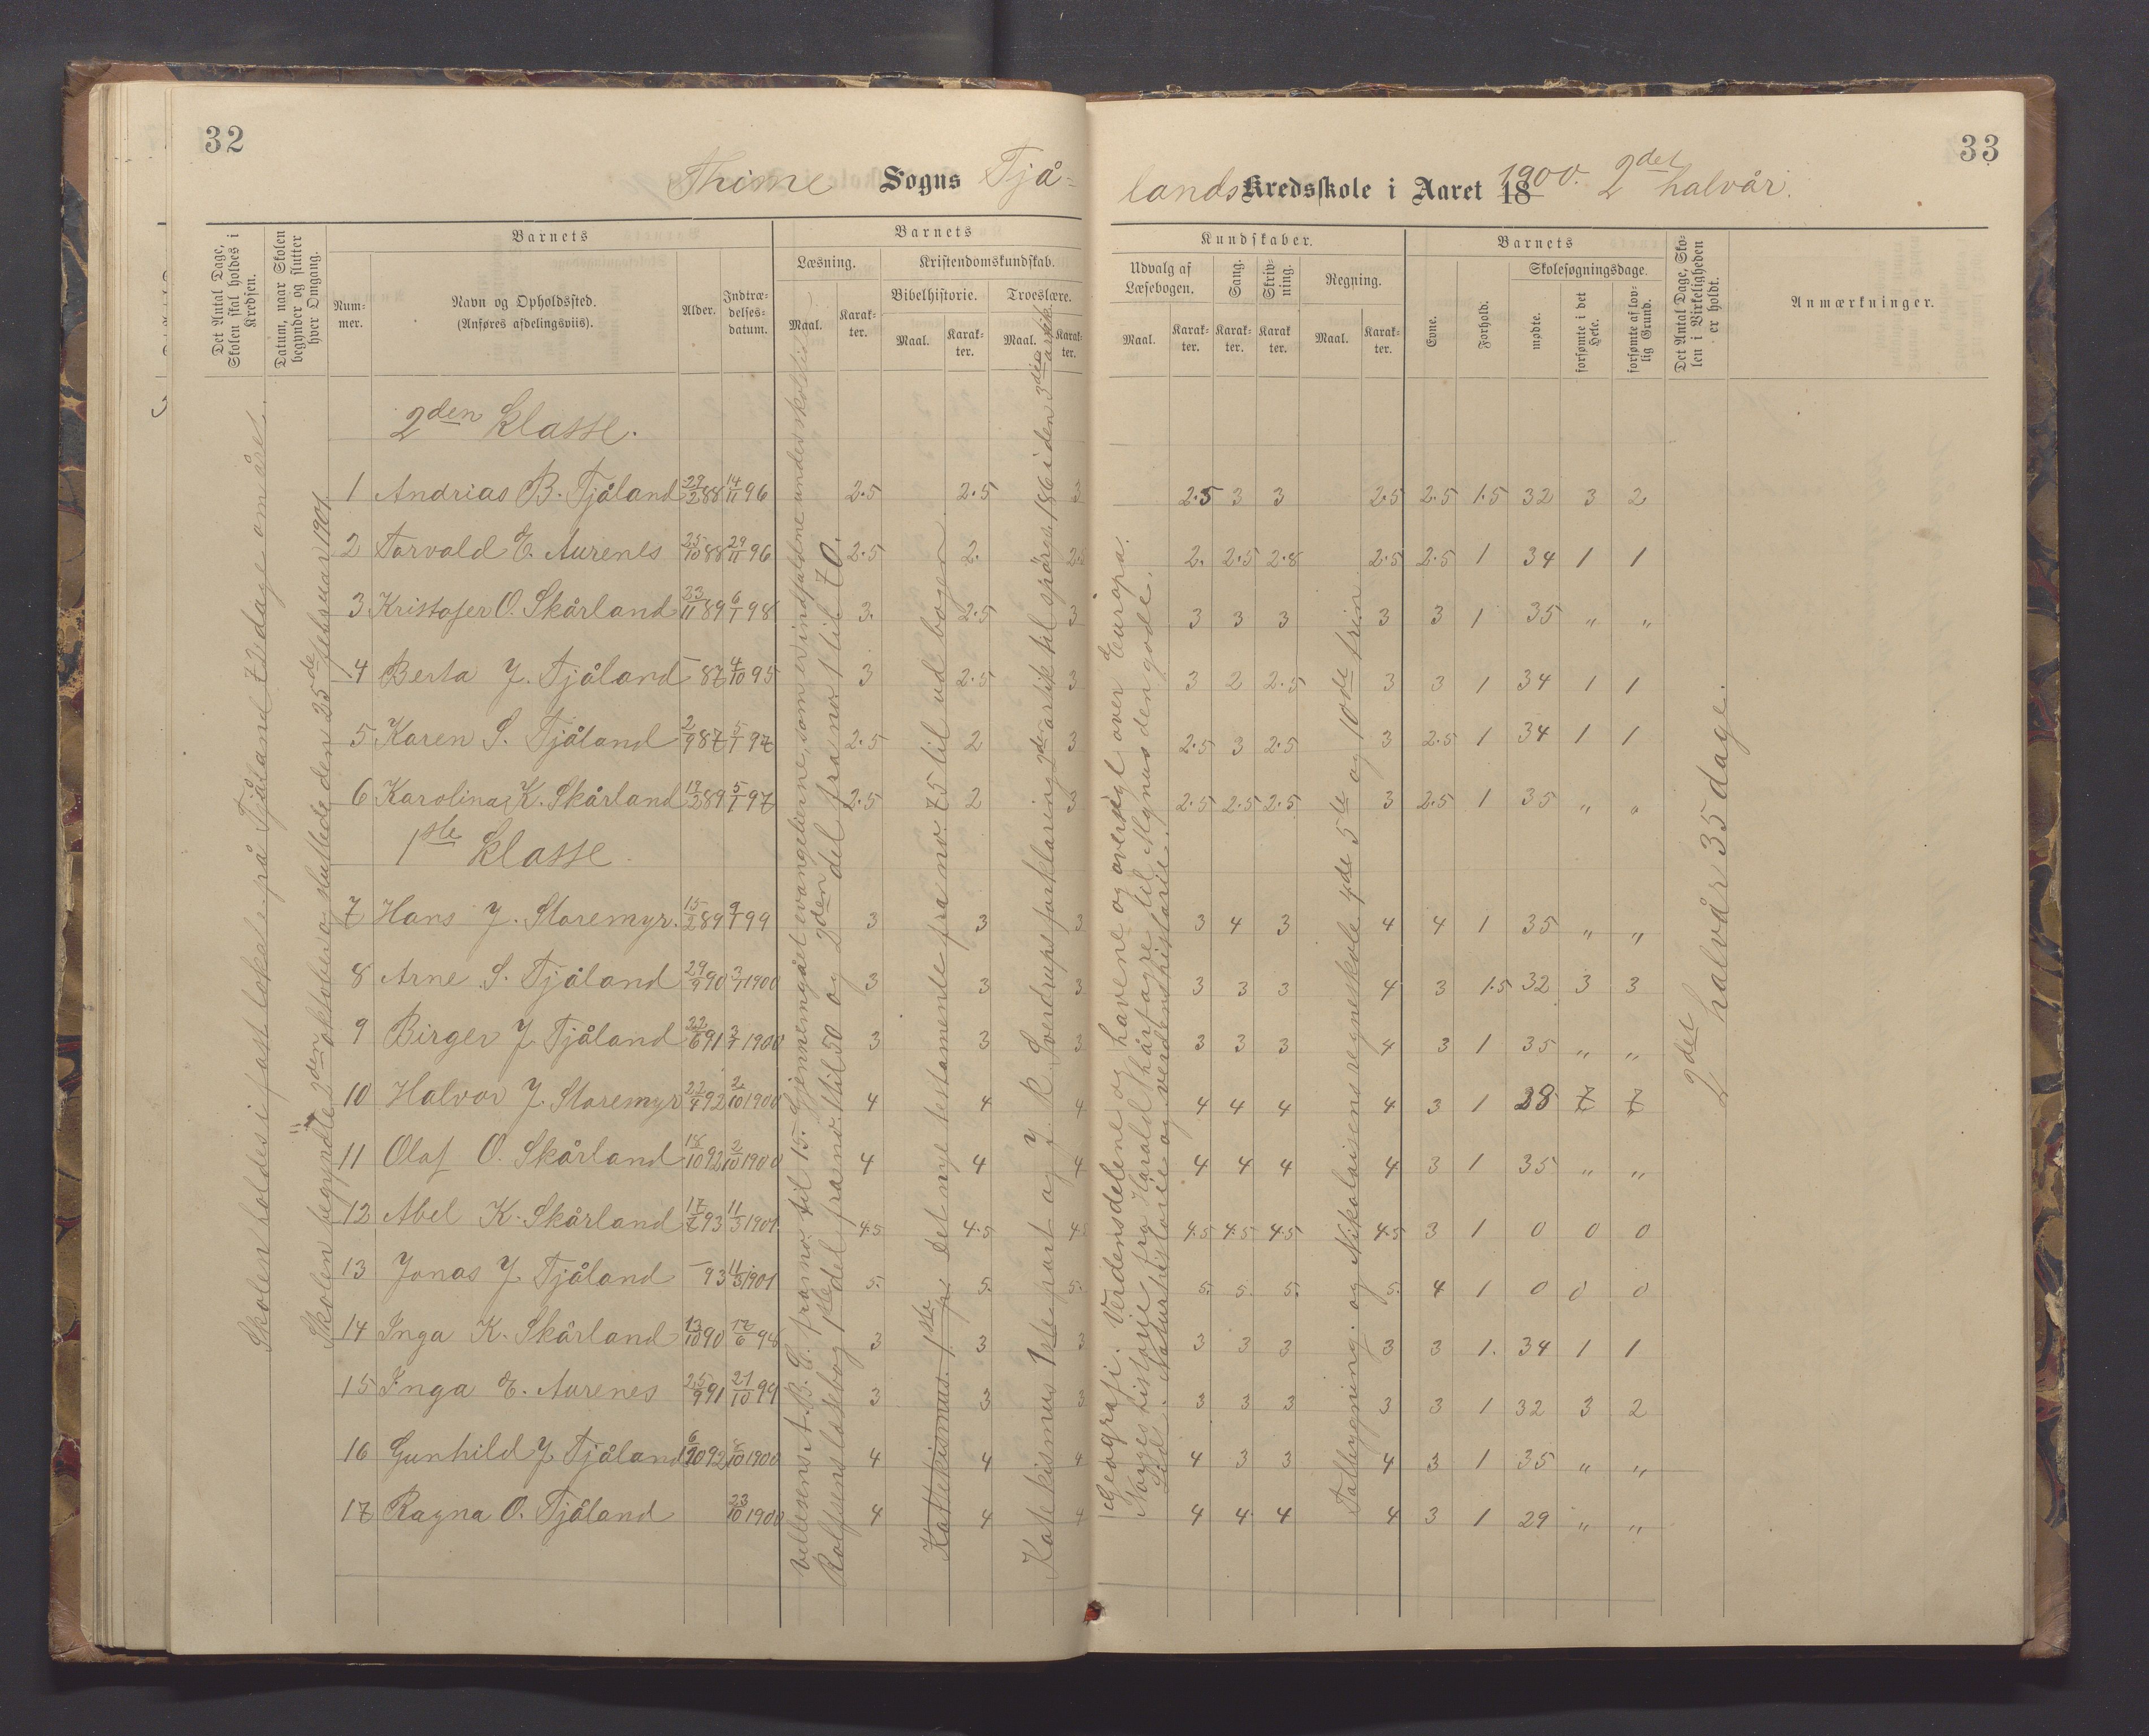 32
33
Thime Sogns Tjå-
lands Kredsskole i Aaret 18 1900. 2det halvår.
Det Antal Dage, Skolen skal holdes i Kredsen.
Datum, naar Skolen begynder og slutter hver Omgang.
Barnets
Nummer.
Navn og Opholdssted.
(Anføres afdelingsviis).
Alder.
Indtrædelsesdatum.
Barnets
Læsning.
Maal.
Karakter.
Kristendomskundskab.
Bibelhistorie.
Maal.
Karakter.
Troeslære.
Maal.
Karakter.
Kundskaber.
Udvalg af Læsebogen.
Maal.
Karakter.
Sang.
Karakter.
Skrivning.
Karakter.
Regning.
Maal.
Karakter.
Barnets
Evne.
Forhold.
Skolesøgningsdage.
mødte.
forsømte i det Hele.
forsømte af lovlig Grund.
Det Antal Dage, Skolen i Virkeligheden er holdt.
Anmærkninger.
Skolen holdes i fast lokale på Tjåland 72 dage om året.
Skolen begyndte 2den oktober og sluttede den 25de februar 1901
Gjennemgået evangelierne, som er indfaldne under skoletid
Vellesens A.B.C. fra no. 1 til 15.
Rolfsens læsebog 1ste del fra no. 1 til 50 og 2den del fra no. 1 til 70.
Katekismus. 1ste p. Det nye testamente fra no. 75 til ud bogen.
Katekismus 1ste part og J. R. Sverdrups forklaring 2den artik til spörsm. 186 i den 3die artik.
Geografi. Verdensdelene og havene og oversigt over Europa.
Norges historie fra Harald hårfagre til Magnus den gode.
Naturhistorie og verdenshistorie.
Tallbygning. og Nikolaisens regneskole 4de 5te og 10de trin
2det halvår 35 dage.
2den Klasse.
1 Andrias B. Tjåland 22/2 88 14/11 96 2.5 2.5 3 2.5 3 3 2.5 2.5 1.5 32 3 2
2 Torvald E. Aurenes 25/10 88 29/11 96 2.5 2. 2.5 2. 2.5 2.8 2.5 2.5 1 34 1 1
3 Kristofer O. Skårland 23/11 89 6/1 98 3. 2.5 3 3 3 3 3 3 1 35 " "
4 Berta J. Tjåland – 87 4/10 95 3 2.5 3 3 2 2.5 3 3 1 34 1 1
5 Karen S. Tjåland 2/9 87 5/1 97 2.5 2 3 2.5 3 2.5 3 2.5 1 34 1 1
6 Karolina K. Skårland 19/2 89 5/1 97 2.5 2 3 2.5 2.5 2.5 3 2.5 1 35 " "
1ste Klasse.
7 Hans J. Storemyr. 15/2 89 9/1 99 3 3 3 3 4 3 4 4 1 35 " "
8 Arne S. Tjåland 29/9 90 3/1 1900 3 3 3 3 3 3 4 3 1.5 32 3 3
9 Birger J Tjåland 22/6 91 3/1 1900 3 3 3 3 3 3 4 3 1 35 " "
10 Halvor J. Storemyr 22/4 92 2/10 1900 4 4 4 4 4 4 4 3 1 28 7 7
11 Olaf O. Skårland 18/10 92 2/10 1900 4 4 4 4 4 4 4 3 1 35 " "
12 Abel K. Skårland 17/7 93 11/3 1901 4.5 4.5 4.5 4.5 4.5 4.5 4.5 3 1 0 0 0
13 Jonas J Tjåland – 93 11/3 1901 5. 5. 5. 5. 5. 5. 5. 4 1 0 0 0
14 Inga K. Skårland 13/10 90 17/6 98 3 3 3 3 3 3 3 3 1. 34 1 1
15 Inga E. Aurenes 25/9 91 21/10 99 3 3 3 3 3 3 3 3 1 32 3 2
16 Gunhild J Tjåland 6/10 92 8/10 1900 4 4 4 4 3 3 4 3 1 35 " "
17 Ragna O. Tjåland 23/10 1900 4 4 4 4 4 4 4 3 1 29 " "